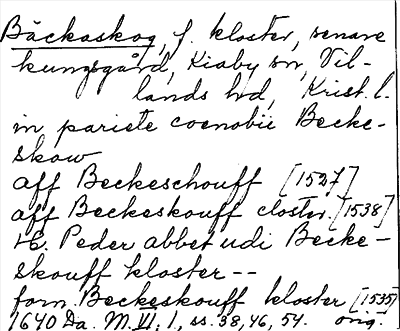 Bäckaskog, f. kloster, senare
kungsgård, Kiaby sn, Vil-
lands hd, Krist. l.
in pariete coenobii Becke-
skow
aff Beckeschouff [1527]
aff Beckeskouff closter. [1538]
H. Peder abbet udi Becke-
skouff kloster --
forn. Beckeskouff kloster [1535]
1640 Da. M. VI: 1, ss. 38, 46, 54. orig.